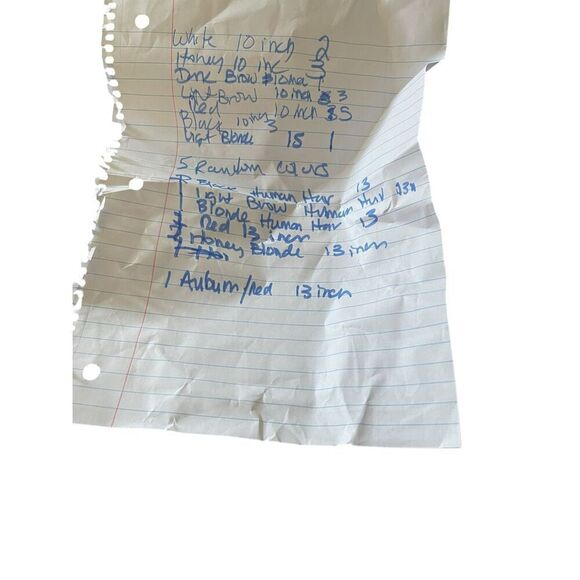 White 10 inch 2
Honey 10 inc 3
Dark Brow 10 inch 1
Light Brow 10 inch 3
Red 10 inch 5
Black 10 inch 3
Light Blonde 18 1
5 Random colors
Human Hair 13
1 Light Brow Human Hair 13in
1 Blonde Human Hair 13
Red 13 inch
Honey Blonde 13 inch
1 Auburn/red 13 inch